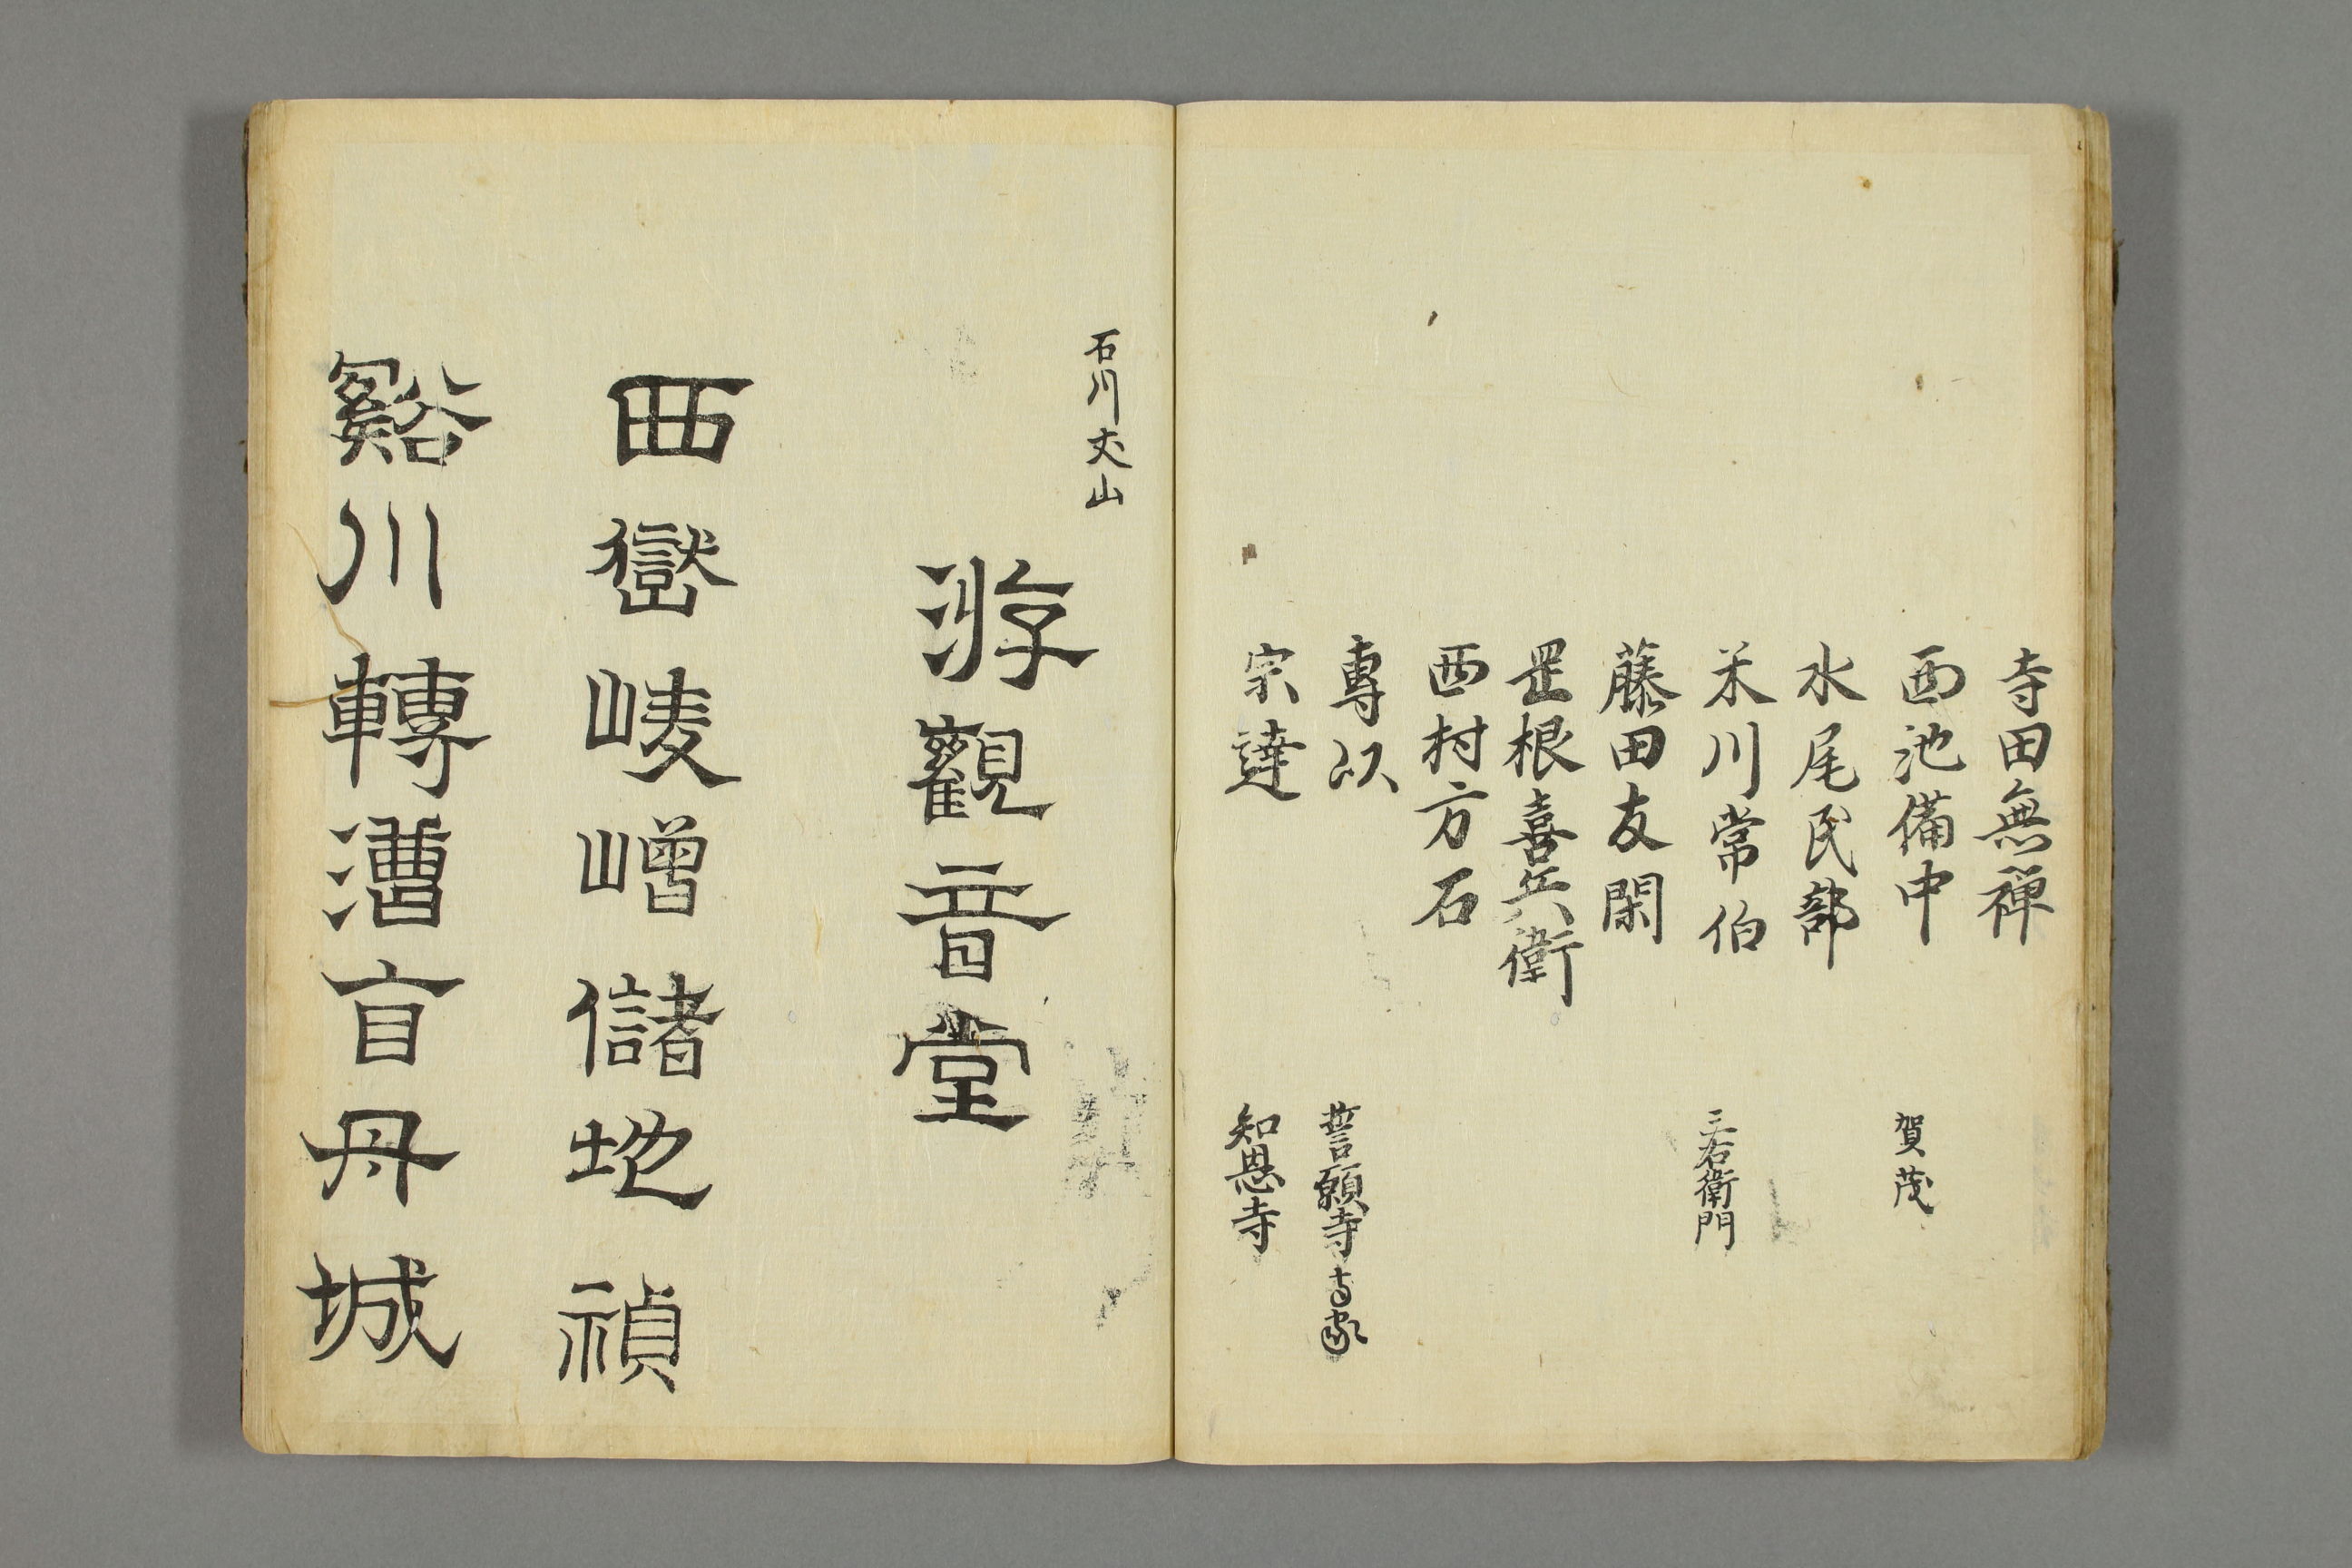 寺田無禅
西池備中 賀茂
水尾民部
米川常伯 三右衛門
藤田友閑
罡根喜兵衛
西村方石
專以 誓願寺寺家
宗達 知恩寺
石川丈山
游觀音堂
西嶽崚嶒儲地禎
谿川轉漕盲丹城